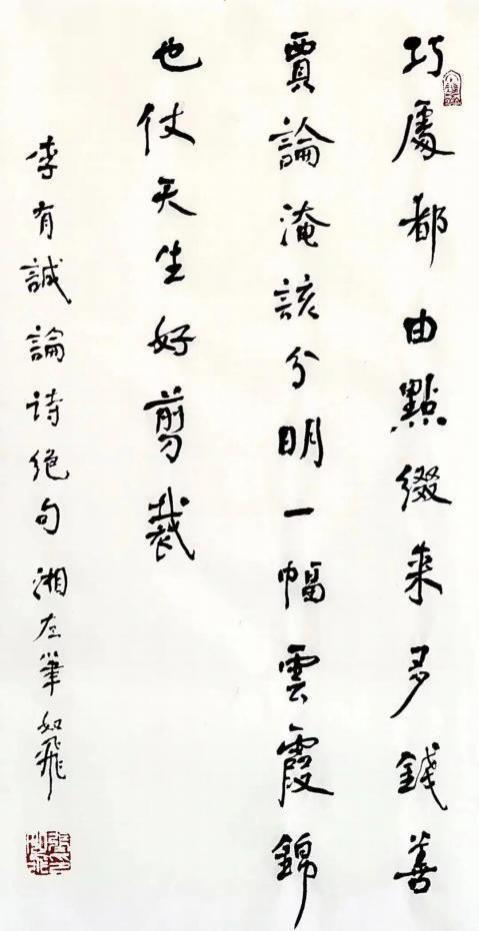 巧處都由點綴来多錢善
賈論淹該分明一幅雲霞錦
也仗天生好剪裁
李有誠論诗絕句 湘左筆如飛